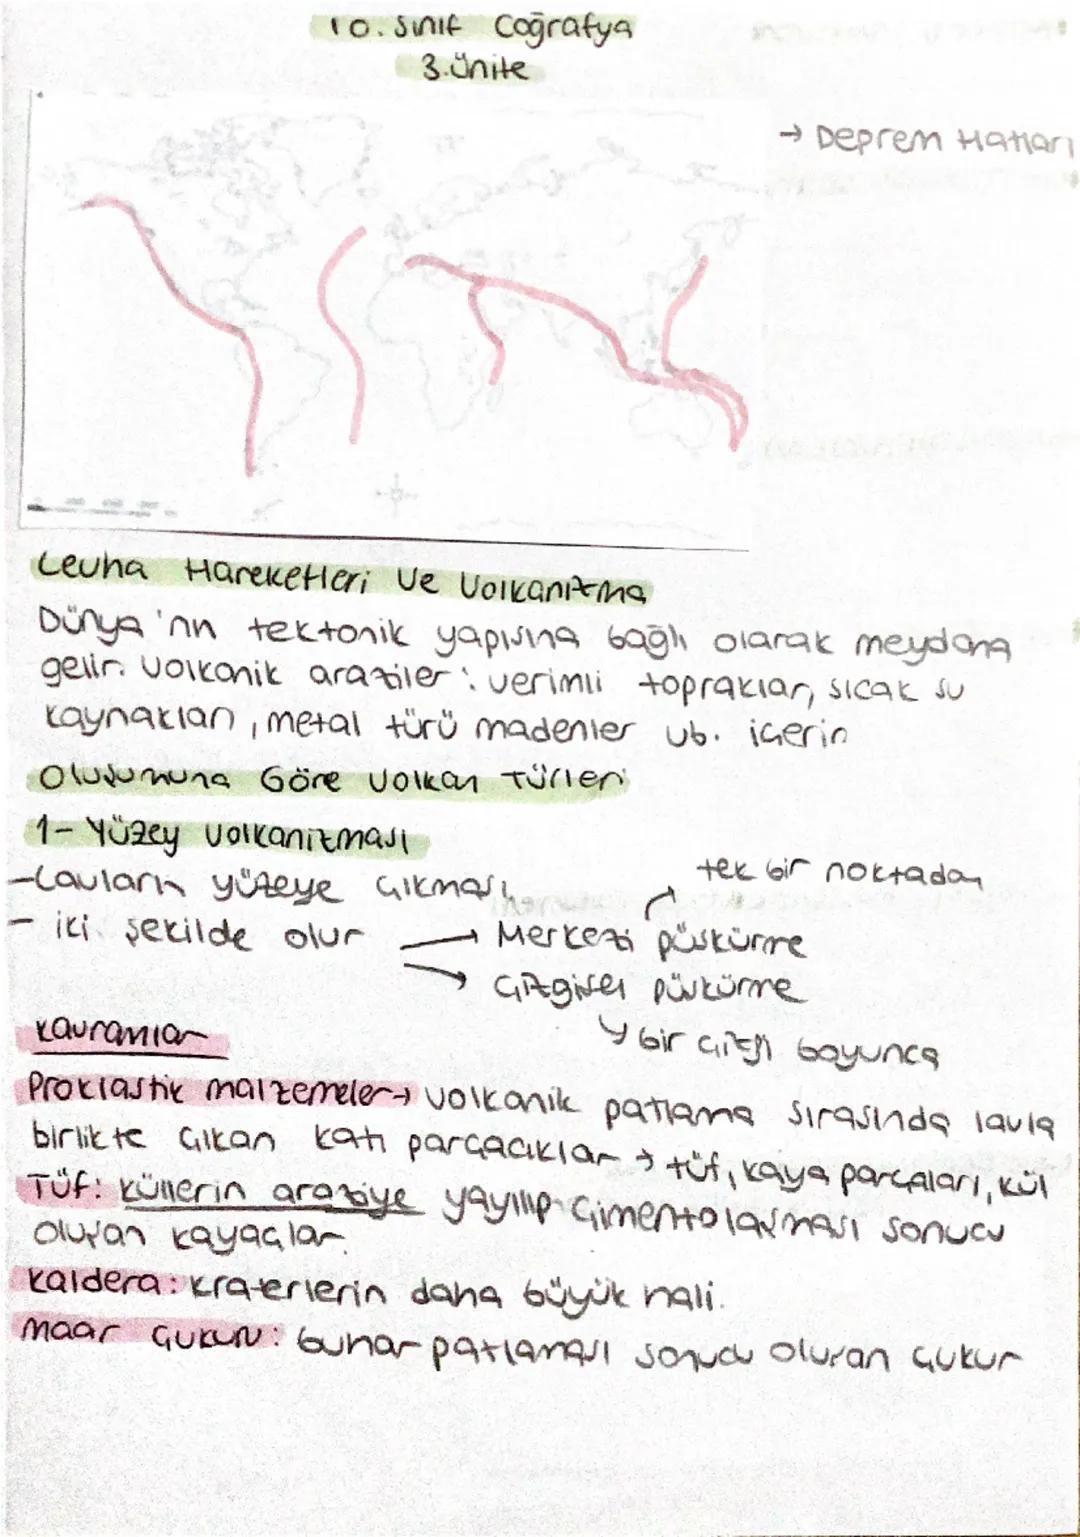 10. Sınıf Coğrafya
3. Ünite
→ Deprem Hatları
Levha Hareketleri Ve Volkanizma
Dünya'nın tektonik yapısına bağlı olarak meydana
gelir. Volkanik araziler: verimli topraklar, sıcak su
kaynakları, metal türü madenler vb. içerir
Oluşumuna Göre Volkan Türleri
1- Yüzey Volkanizması
-Lavların yüzeye çıkması
tek bir noktadan
- iki şekilde olur → Merkezi püskürme
→ Çizgisel püskürme
↳ bir çizgi boyunca
Kavramlar
Proklastik malzemeler → Volkanik patlama sırasında lavla
birlikte çıkan katı parçacıklar → tüf, kaya parçaları, kül
Tüf: Küllerin araziye yayılıp çimentolaşması sonucu
oluşan kayaçlar.
Kaldera: kraterlerin daha büyük hali.
Maar Çukuru: buhar patlaması sonucu oluşan çukur